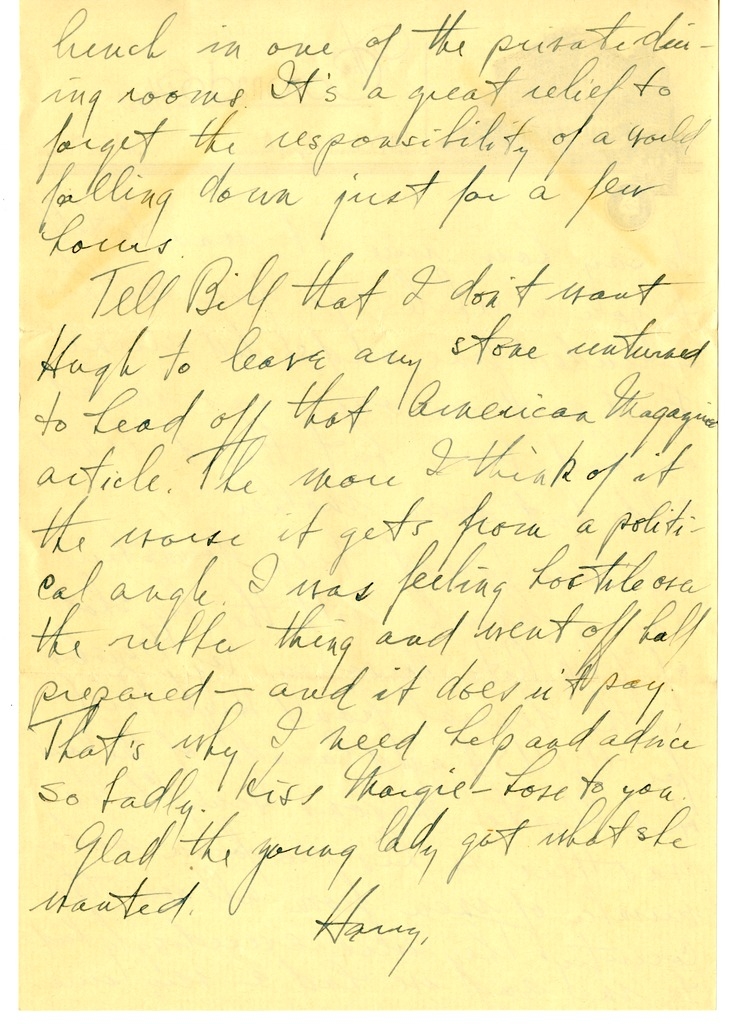 lunch in one of the private din-
ing rooms. It's a great relief to
forget the responsibility of a world
falling down just for a few
hours.
Tell Bill that I don't want
Hugh to leave any stone unturned
to head off that American Magazine
article. The more I think of it
the worse it gets from a politi-
cal angle. I was feeling hostile over
the thing and went off half
prepared – and it doesn't pay.
That's why I need help and advice
so badly. Kiss Margie – love to you.
Glad the young lady got what she
wanted.
Harry.